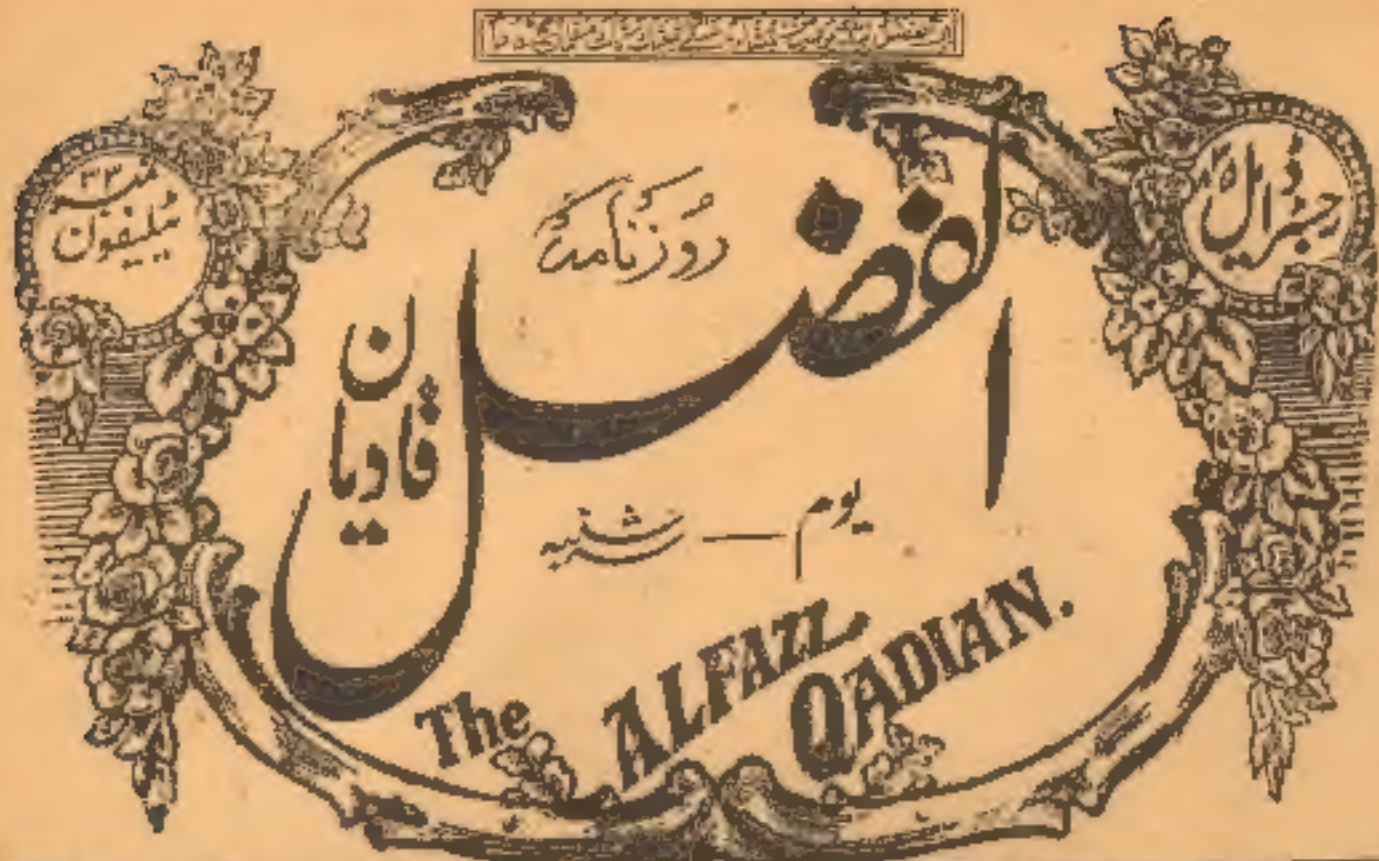 رجسٹرڈ ایل
ٹیلیفون
نمبر ۳۳
روزنامہ
الفضل
قادیان
یوم — شنبہ
The ALFAZL
QADIAN.